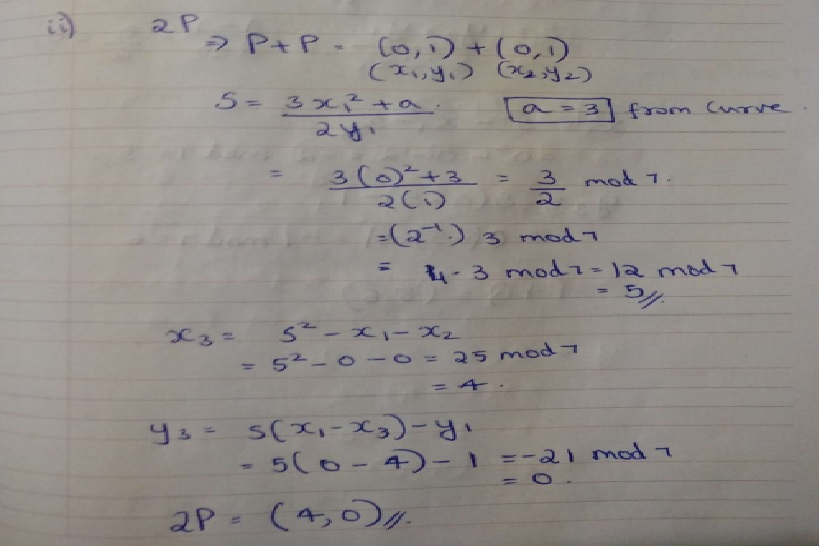 ii) 2P
⇒ P + P = (0,1) + (0,1)
(x₁,y₁) (x₂,y₂)
S = 3x₁² + a / 2y₁ a = 3 from curve.
= 3(0)² + 3 / 2(1) = 3/2 mod 7.
= (2⁻¹) 3 mod 7
= 4 · 3 mod 7 = 12 mod 7
= 5//
x₃ = S² - x₁ - x₂
= 5² - 0 - 0 = 25 mod 7
= 4.
y₃ = S(x₁ - x₃) - y₁
= 5(0 - 4) - 1 = -21 mod 7
= 0.
2P = (4,0)//.